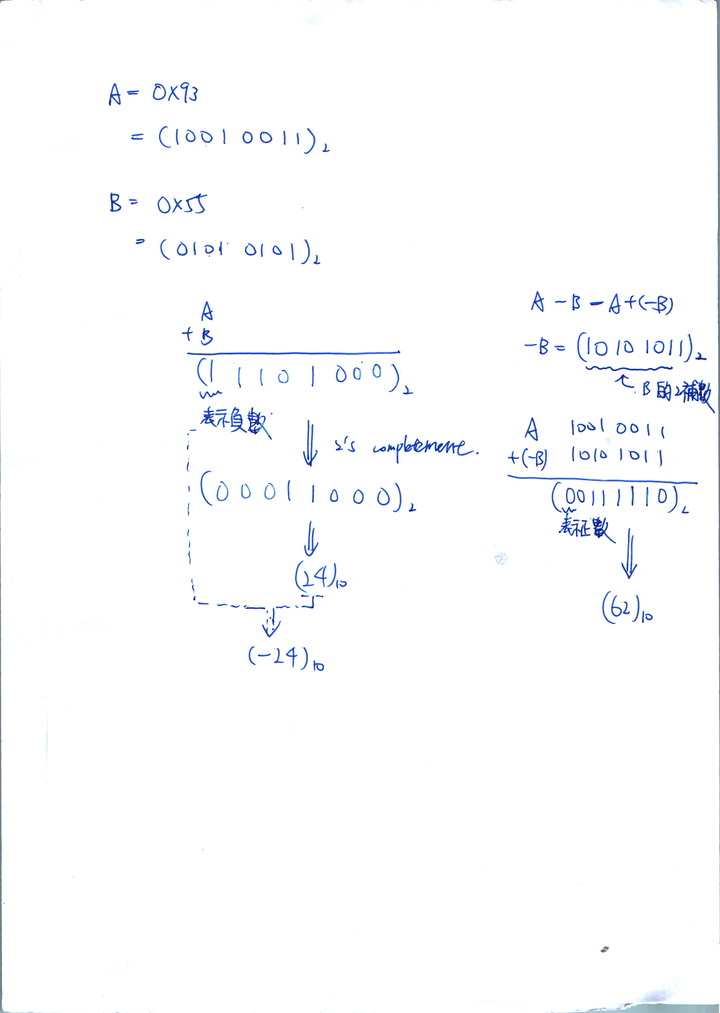 A = 0X93
= (1001 0011)₂
B = 0X55
= (0101 0101)₂
A
+ B
(1 1 1 0 1 0 0 0)₂
表示負數
2's complement.
(0 0 0 1 1 0 0 0)₂
(24)₁₀
(-24)₁₀
A - B = A + (-B)
-B = (1010 1011)₂
B的2補數
A 1001 0011
+(-B) 1010 1011
(00111110)₂
表正數
(62)₁₀